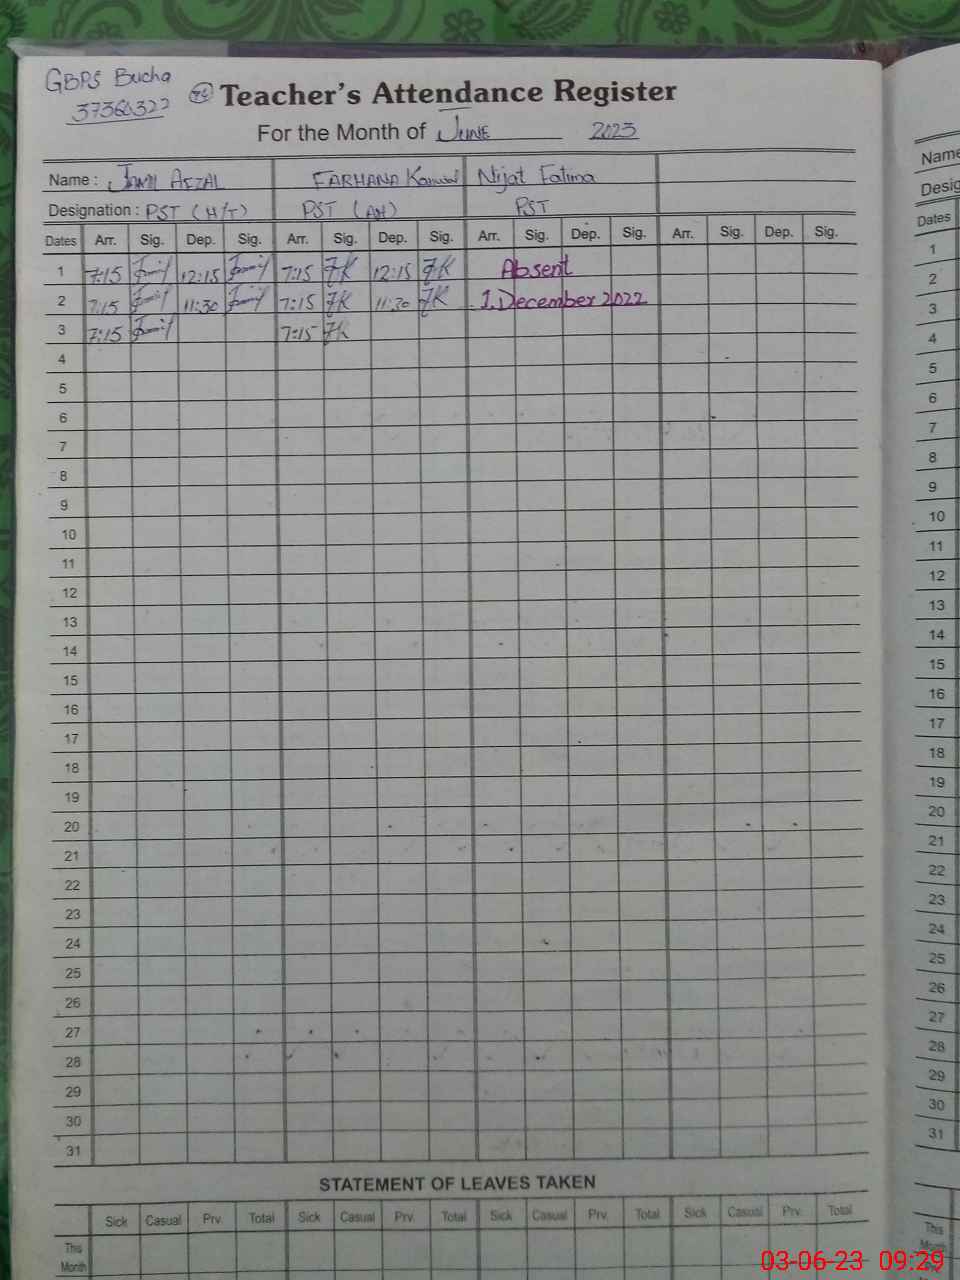 GBPS Bucha
37360322
Teacher's Attendance Register
For the Month of June 2023
Name : Jamil Afzal FARHANA Kanwal Nijat Fatima
Designation : PST (H/T) PST (AH) PST
Dates Arr. Sig. Dep. Sig. Arr. Sig. Dep. Sig. Arr. Sig. Dep. Sig. Arr. Sig. Dep. Sig.
1 7:15 Jamil 12:15 Jamil 7:15 FK 12:15 FK Absent
2 7:15 Jamil 11:30 Jamil 7:15 FK 11:30 FK 1.December 2022
3 7:15 Jamil 7:15 FK
4
5
6
7
8
9
10
11
12
13
14
15
16
17
18
19
20
21
22
23
24
25
26
27
28
29
30
31
STATEMENT OF LEAVES TAKEN
Sick Casual Prv. Total Sick Casual Prv. Total Sick Casual Prv. Total Sick Casual Prv. Total
This
Month
Name
Desig
Dates
1
2
3
4
5
6
7
8
9
10
11
12
13
14
15
16
17
18
19
20
21
22
23
24
25
26
27
28
29
30
31
This
Month
03-06-23 09:29